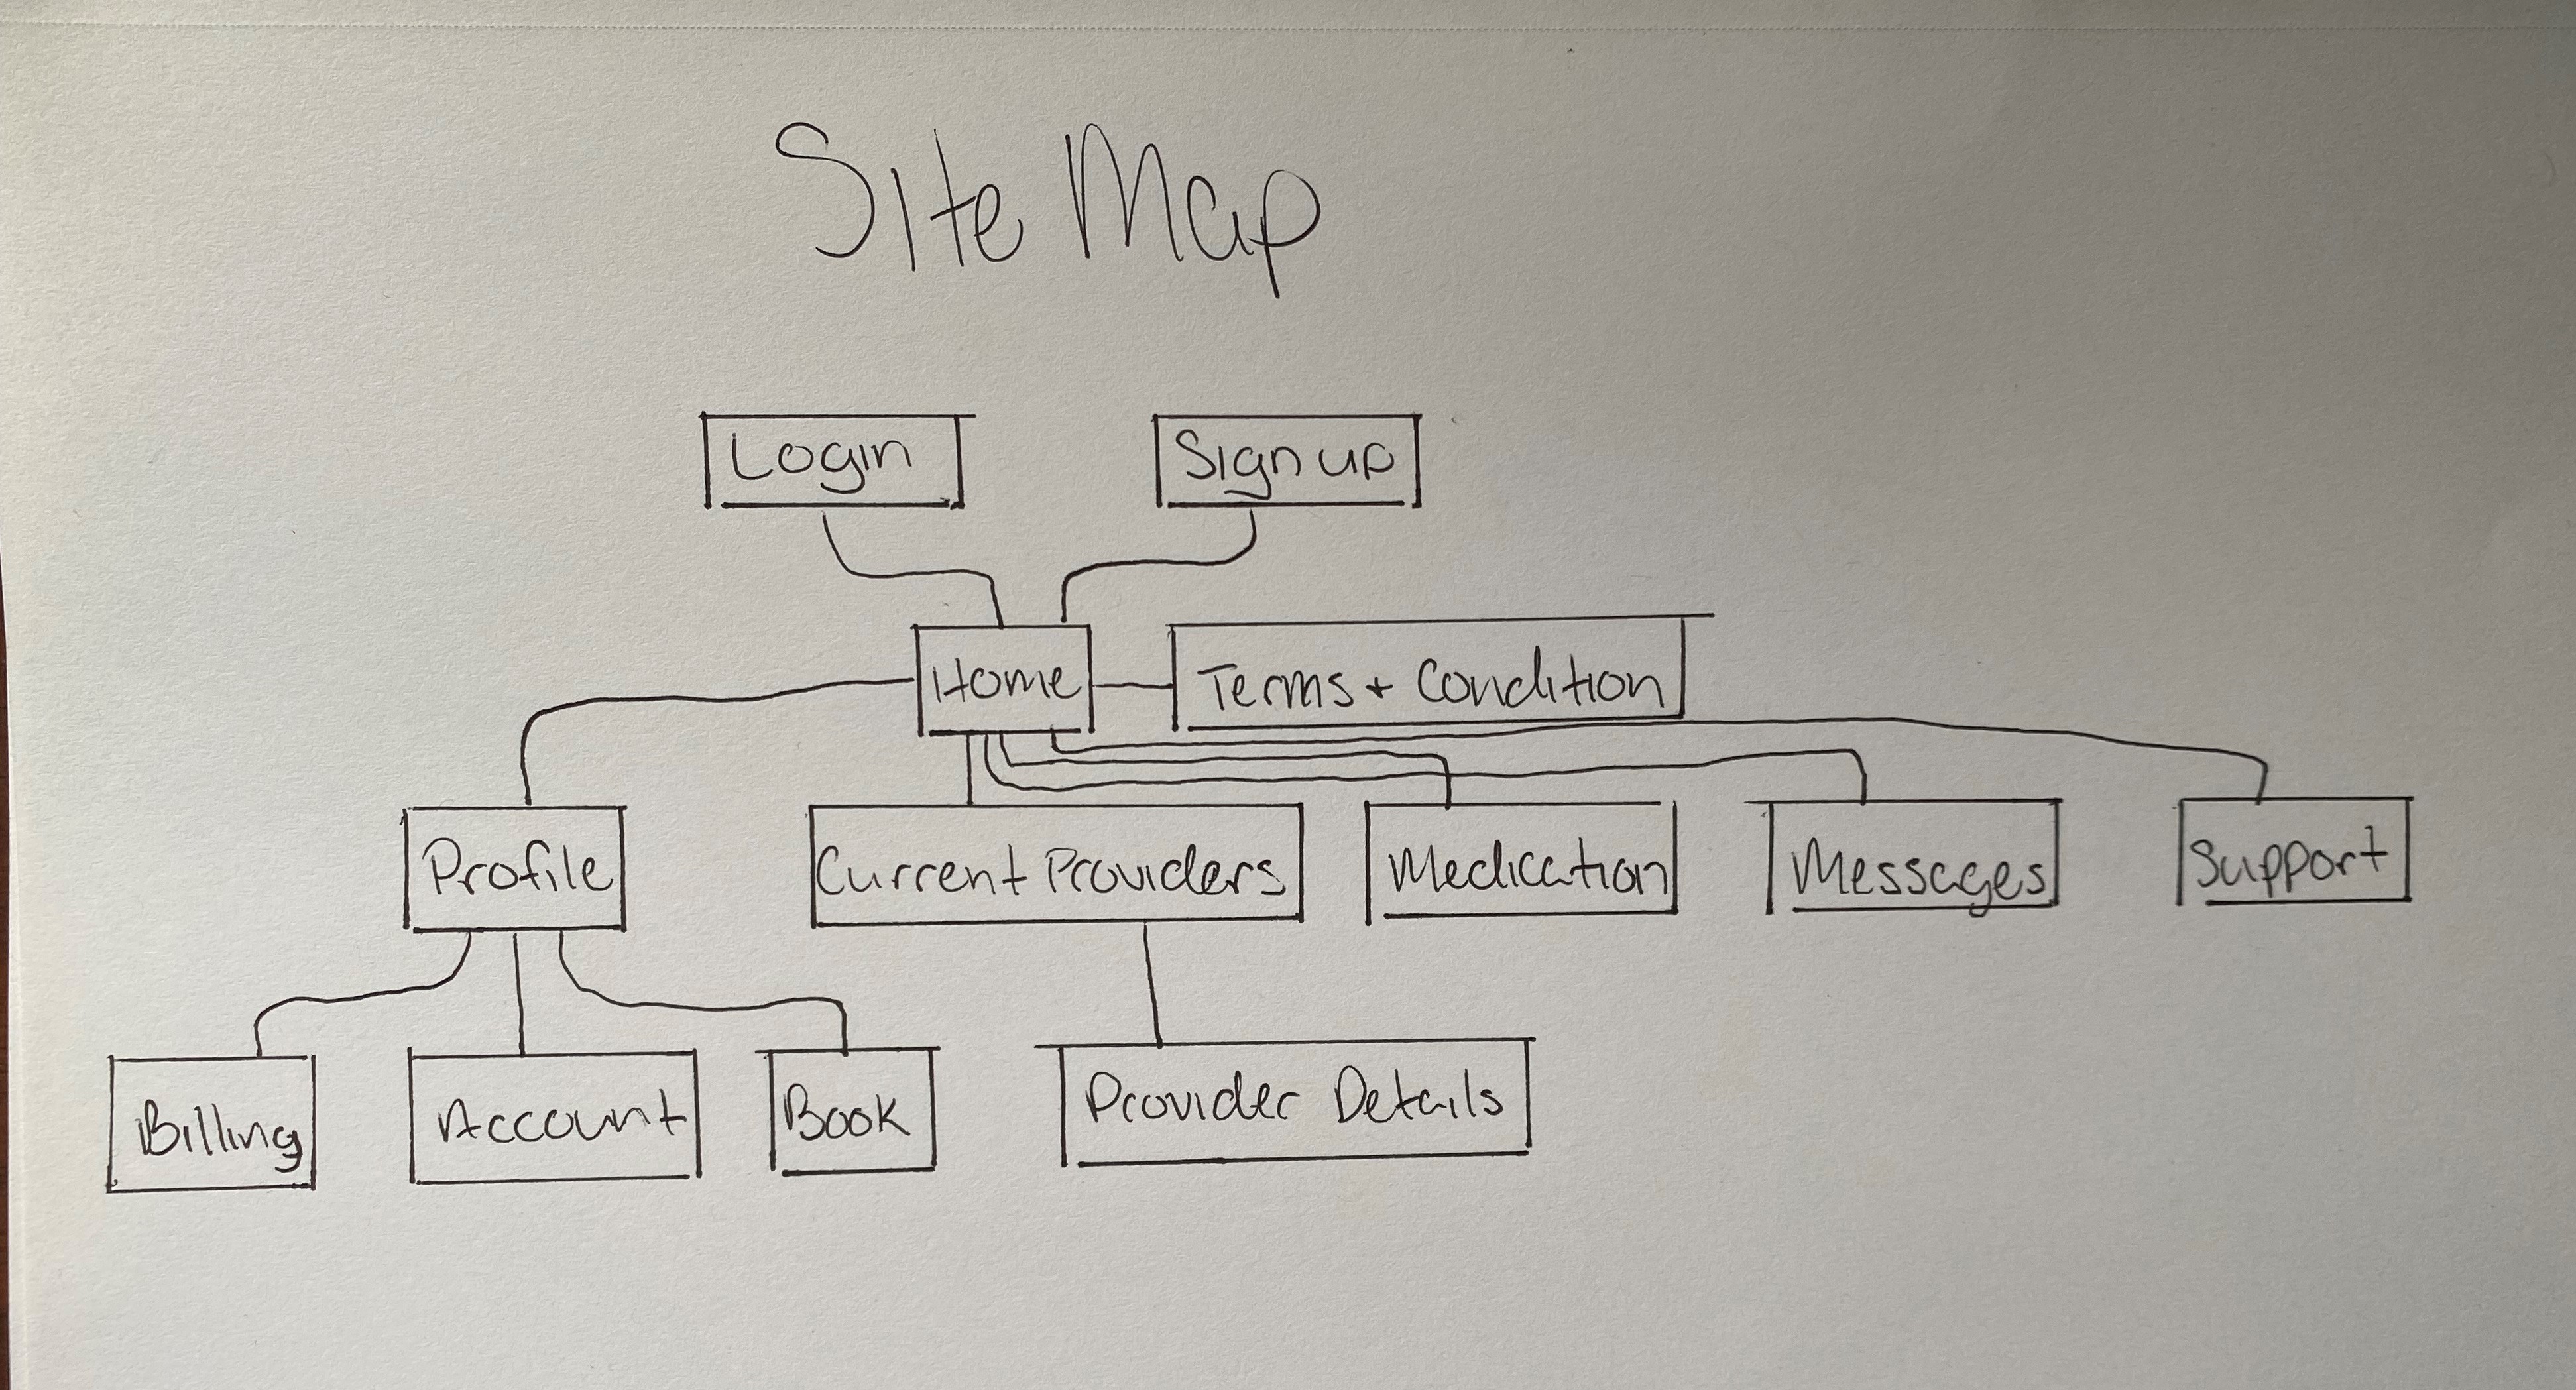 Site Map
Login
Sign up
Home
Terms + Condition
Profile
Current Providers
Medication
Messages
Support
Billing
Account
Book
Provider Details